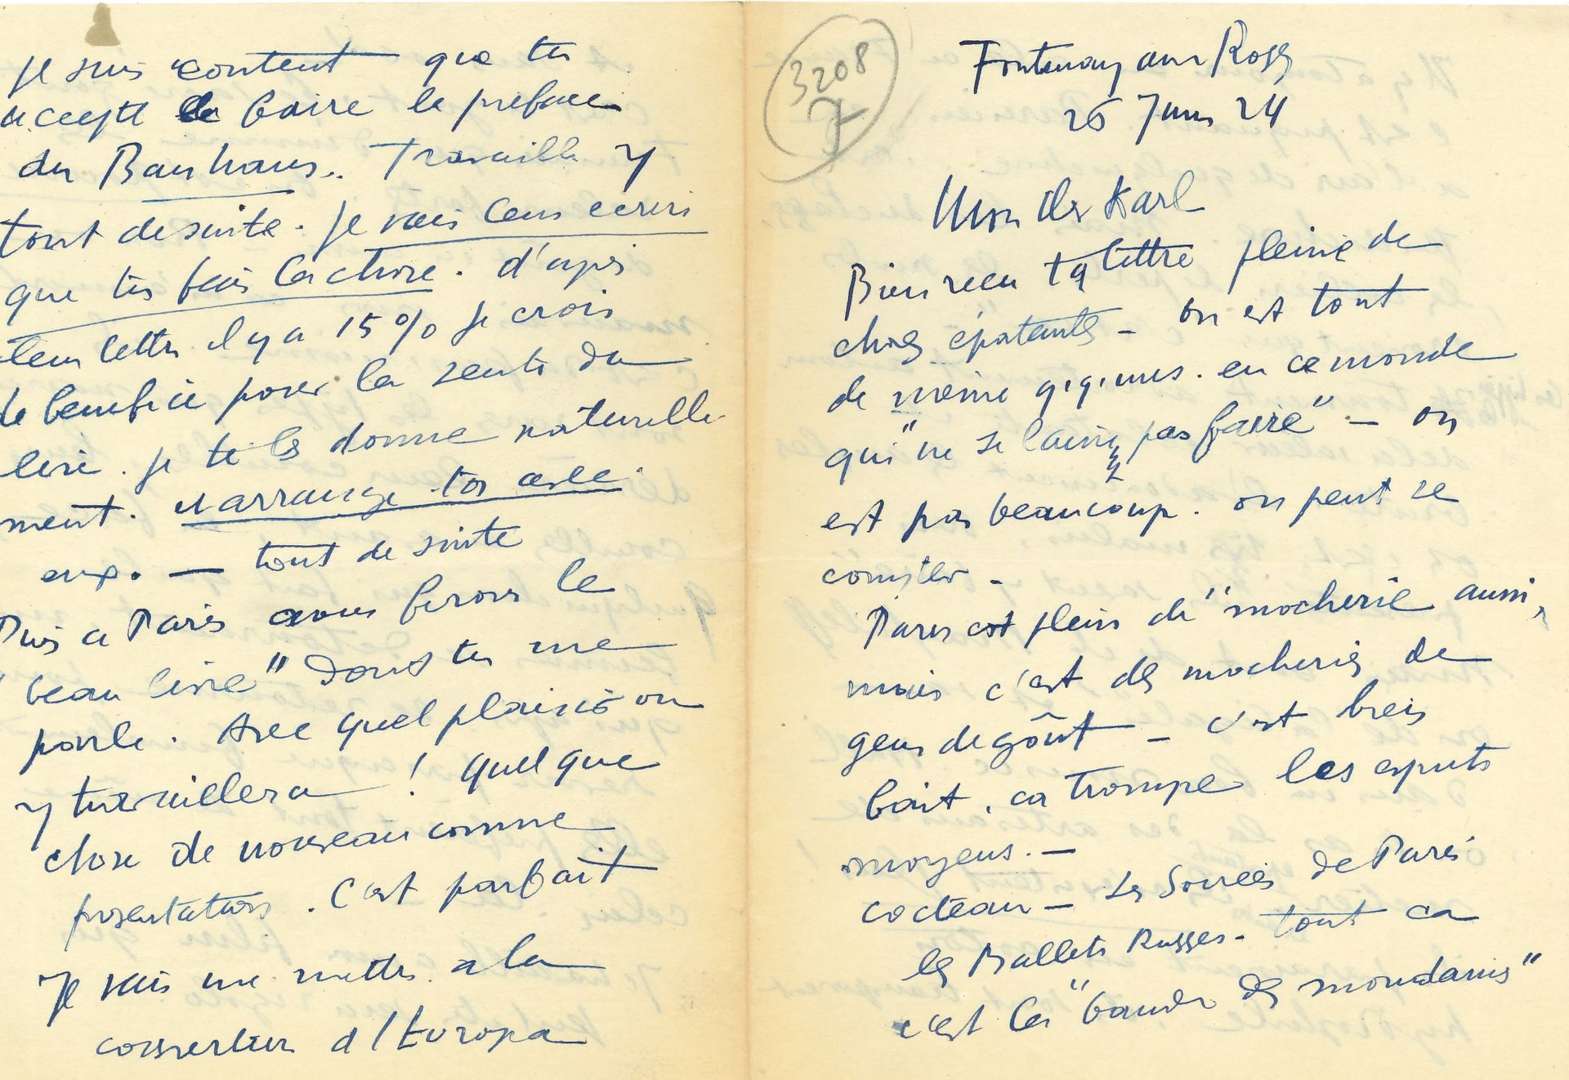 3208
7
Fontenay aux Roses
26 Juin 24
Mon cher Karl
Bien reçu ta lettre pleine de
choses épatantes - on est tout
de même quelques uns en ce monde
qui "ne se laisse pas faire" - on
est pas beaucoup. on peut se
compter -
Paris est plein de "mocherie aussi,
mais c'est des mocheries de
gens de goût - c'est bien
fait, ca trompe les esprits
moyens. -
Cocteau - Les Soirées de Paris
les Ballets Russes - tout ca
c'est la "bande des mondains"
Je suis content que tu
accepte de faire la préface
du Bauhaus.. Travaille y
tout de suite. Je vais leur ecrire
que tu fais la chose. d'après
leur lettre il y a 15% je crois
de benefice pour la vente du
livre. je te les donne naturelle
ment. et arrange toi avec
eux. - tout de suite
Puis a Paris nous ferons le
"beau livre" dont tu me
parle. Avec quel plaisir on
y travaillera ! quelque
chose de nouveau comme
presentation. C'est parfait
Je vais me mettre a la
couverture d'Europa